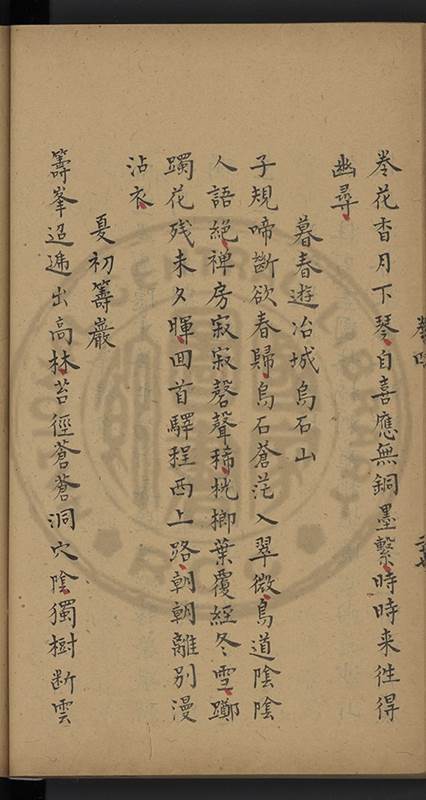 孝花杳月下琴自喜應無銅墨繫時時来徃得
幽尋
暮春遊冶城烏石山
子規啼斷欲春歸烏石蒼茫入翠微鳥道陰陰
人語絕禅房寂寂磬聲稀桄榔葉覆經冬雪躑
躅花残未夕暉回首驛程西上路朝朝離別漫
沾衣
夏初籌巖
籌峯迢遞出高林苔徑蒼蒼洞穴陰獨樹断雲